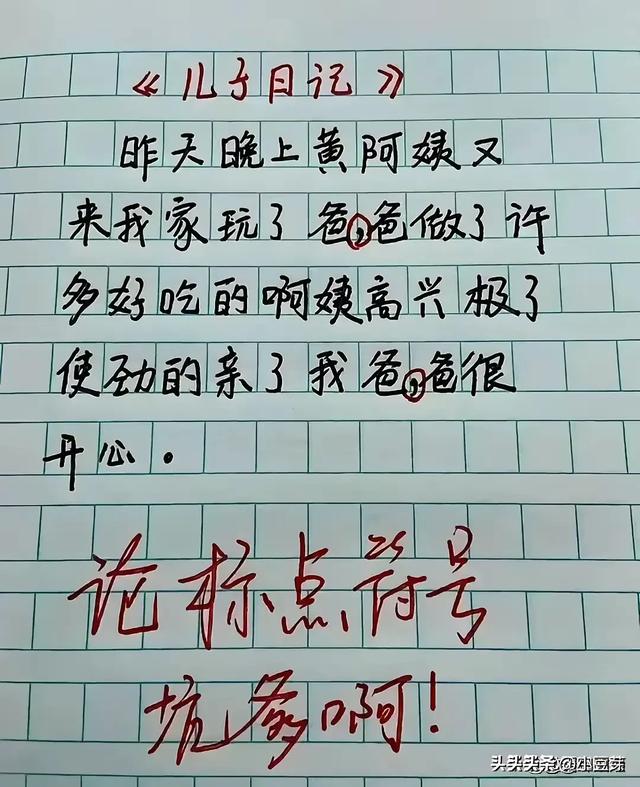 《儿子日记》
昨天晚上黄阿姨又
来我家玩了爸,爸做了许
多好吃的啊姨高兴极了
使劲的亲了我爸,爸很
开心。
论标点符号
坑爹啊!